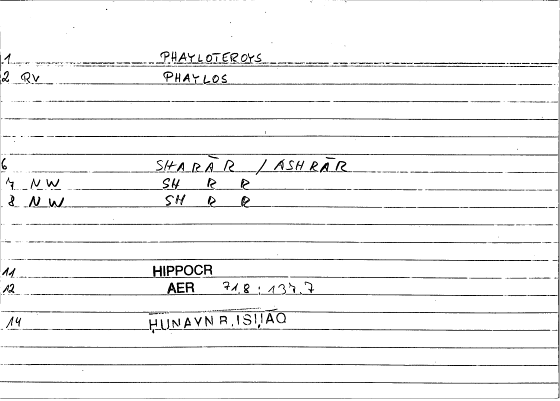 1 PHAYLOTEROYS
2 RV PHAYLOS
6 SHARĀR / ASHRĀR
7 NW SH R R
8 NW SH R R
11 HIPPOCR
12 AER 71.8 : 137.7
14 ḤUNAYN B. ISḤĀQ